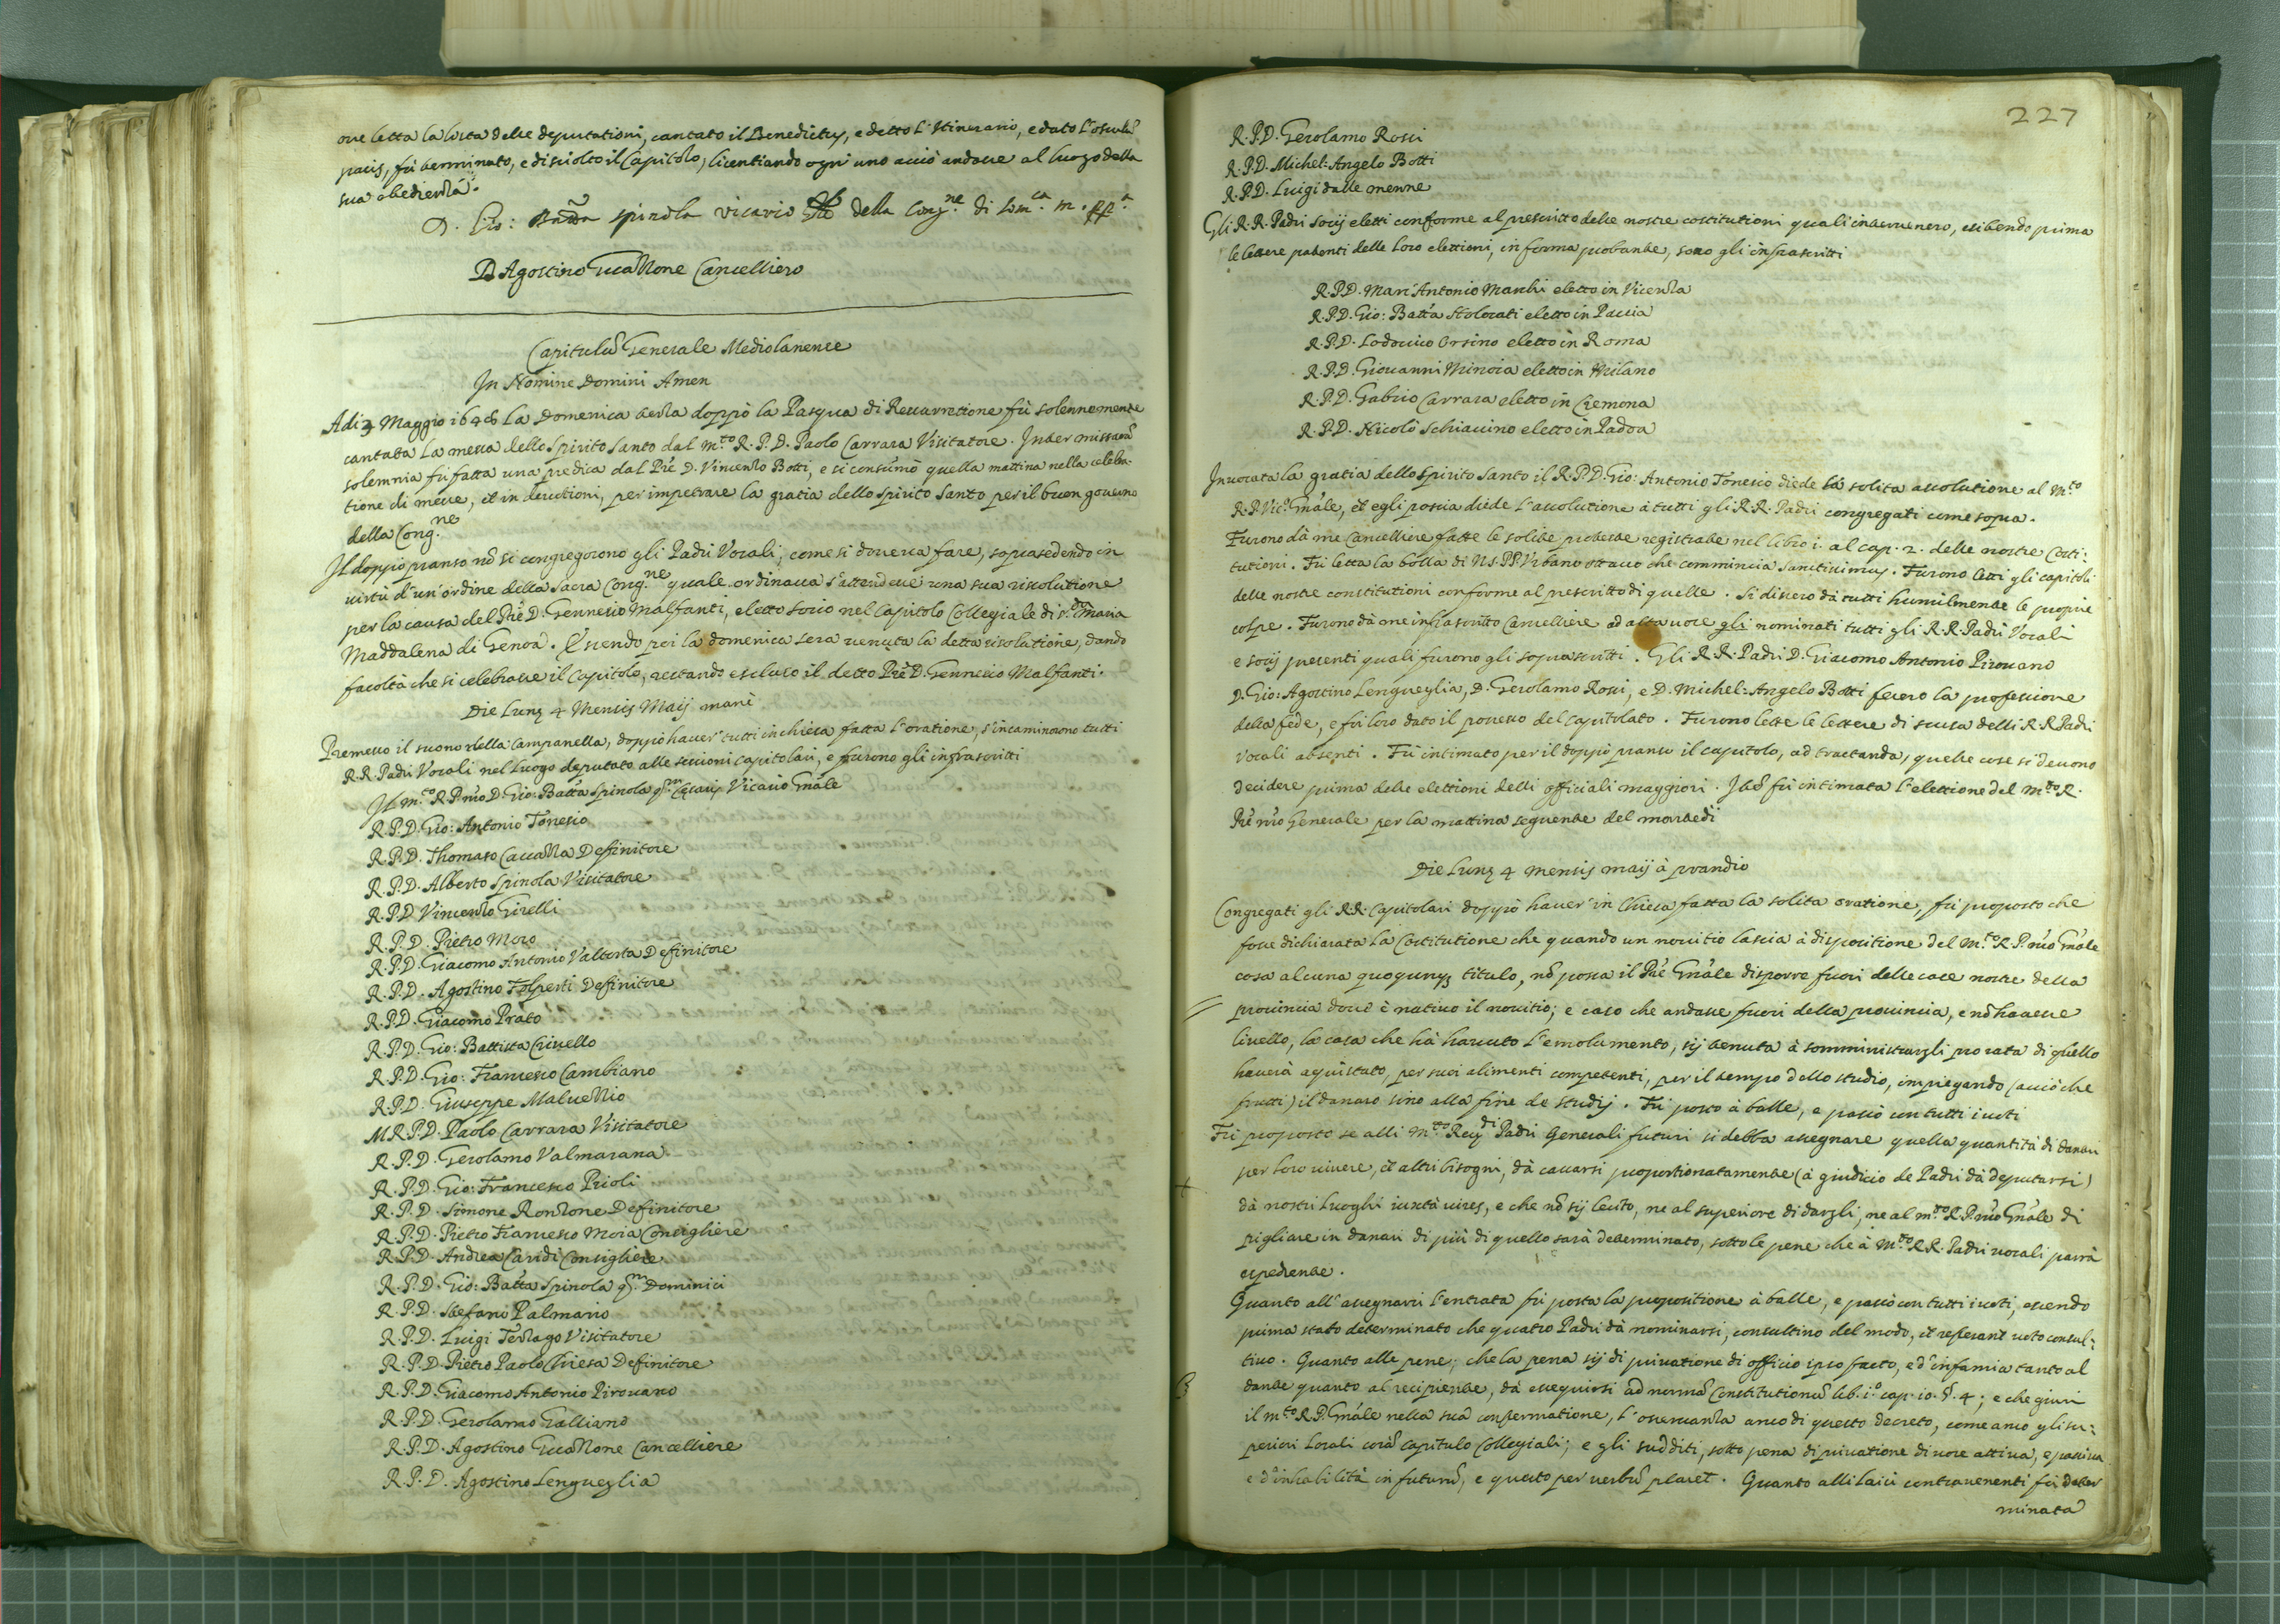 oue letta la lista delle deputationi, cantato il Benedictus, e detto l'Itinerario, e dato l'osculũ
pacis, fù terminato, e disciolto il Capitolo, licentiando ogn'uno acciò andasse al luogo della
sua obedienza.
D. Gio: Batta Spinola vicario della Cong.ne di Som.ca
D. Agostino Cancelliero
Capitulũ Generale Mediolanense
In Nomine Domini Amen
Adi 3 Maggio 1648 la Domenica terza doppò la Pasqua di Resurrettione fù solennemente
cantata la messa dello Spirito Santo dal m.to R. P. D. Paolo Carrara Visitatore. Inter missarũ
solemnia fù fatta una predica dal Prẽ D. Vincenzo Botti, e si consumò quella mattina nella celebra-
tione di messe, et in deuotioni, per impetrare la gratia dello Spirito Santo per il buon gouerno
della Cong.ne
Il doppò pranso nõ si congregorono gli Padri Vocali, come si doueua fare, soprasedendo in
virtù d'un'ordine della Sacra Cong.ne quale ordinaua s'attendesse una sua risolutione
per la causa del Prẽ D. Gennesio Malfanti, eletto socio nel Capitolo Collegiale di S.ta Maria
Maddalena di Genoa. Essendo poi la domenica sera venuta la detta risolutione, dando
facoltà che si celebrasse il Capitolo, restando escluso il detto Prẽ D. Gennesio Malfanti.
Die Lunę 4 Mensis Maij manè
Premesso il suono della Campanella, doppò hauer' tutti in chiesa fatta l'oratione, s'incaminorono tutti
R.R. Padri Vocali nel luogo deputato alle sessioni capitolari, e furono gli infrascritti
Il m.to R. P. nr̃o D. Gio: Batta Spinola q.m Cęsaris Vicario Gnãle
R. P. D. Gio: Antonio Tonesio
R. P. D. Thomaso Definitore
R. P. D. Alberto Spinola Visitatore
R. P. D. Vincenzo Girelli
R. P. D. Pietro Moro
R. P. D. Giacomo Antonio Valtorta Definitore
R. P. D. Agostino Definitore
R. P. D. Giacomo Prato
R. P. D. Gio: Battista Criuello
R. P. D. Gio: Francesco Cambiano
R. P. D. Giuseppe Maluezzio
M. R. P. D. Paolo Carrara Visitatore
R. P. D. Gerolamo Valmarana
R. P. D. Gio: Francesco Prioli
R. P. D. Simone Ronzone Definitore
R. P. D. Pietro Francesco Moia Consigliere
R. P. D. Andrea Consigliere
R. P. D. Gio: Batta Spinola q.m Dominici
R. P. D. Stefano Palmario
R. P. D. Luigi Terzago Visitatore
R. P. D. Pietro Paolo Chiesa Definitore
R. P. D. Giacomo Antonio Pirouano
R. P. D. Gerolamo Galliano
R. P. D. Agostino Cancelliere
R. P. D. Agostino Lengueglia
227
R. P. D. Gerolamo Rossi
R. P. D. Michel: Angelo Botti
R. P. D. Luigi dalle menne
Gli R. R. Padri Socij eletti conforme al prescritto delle nostre costitutioni quali interuennero, esibendo prima
le lettere patenti delle loro elettioni, in forma probante, sono gli infrascritti
R. P. D. Marc'Antonio Maschi eletto in Vicenza
R. P. D. Gio: Batta Stolocati eletto in Pauia
R. P. D. Lodouico Orsino eletto in Roma
R. P. D. Giouanni Minoia eletto in Milano
R. P. D. Gabrio Carrara eletto in Cremona
R. P. D. Nicolò Schiauino eletto in Padoa
Inuocata la gratia dello Spirito Santo il R. P. D. Gio: Antonio Tonesio diede la solita assolutione al M.to
R. P. Vic.o Gnãle, et egli poscia diede l'assolutione à tutti gli R. R. Padri congregati come sopra.
Furono dà me Cancelliere fatte le solite proteste registrate nel libro i. al cap. 2. delle nostre Costi:
tutioni. Fù letta la bolla di N. S. PP. Vrbano ottauo che commincia Sanctissimus. Furono letti gli capitoli
delle nostre constitutioni conforme al prescritto di quelle. Si dissero dà tutti humilmente le proprie
colpe. Furono dà me infrascritto Cancelliere ad alta uoce gli nominati tutti gli R. R. Padri Vocali
e socij presenti quali furono gli soprascritti. Gli R. R. Padri D. Giacomo Antonio Pirouano
D. Gio: Agostino Lengueglia, D. Gerolamo Rossi, e D. Michel: Angelo Botti fecero la professione
della fede, e fù loro dato il possesso del Capitolato. Furono lette le lettere di scusa delli R. R. Padri
Vocali absenti. Fù intimato per il doppò pranso il capitolo, ad tractanda, quelle cose si deuono
decidere prima delle elettioni delli officiali maggiori. Itẽ fù intimata l'elettione del m.to R.
Prẽ nr̃o Generale per la mattina seguente del martedì
Die Lunę 4 mensis maij à prandio
Congregati gli R.R. Capitolari doppò hauer' in Chiesa fatta la solita oratione, fù proposto che
fosse dichiarata la Costitutione che quando un nouitio lascia à dispositione del M.to R. P. nr̃o Gnãle
cosa alcuna quoqunqз titulo, nõ possa il Prẽ Gnãle disporre fuori delle case nostre della
prouincia doue è natiuo il nouitio; e caso che andasse fuori della prouincia, e nõ hauesse
liuello, la casa che hà hauuto l'emolumento, sij tenuta à somministrargli pro rata di quello
hauerà aquistato, per suoi alimenti competenti, per il tempo dello studio, impiegando (acciò che
frutti) il danaro sino alla fine de studij. Fù posto à balle, e passò con tutti i uoti
Fù proposto se alli M.to Reu.di Padri Generali futuri si debba assegnare quella quantità di danari
per loro viuere, et altri bisogni, dà cauarsi proportionatamente (à giudicio de Padri dà deputarsi)
dà nostri Luoghi iuxtà uires, e che nõ sij lecito, ne al superiore di dargli, ne al m.to R. P. nr̃o Gnãle di
pigliare in danari di più di quello sarà determinato, sotto le pene che à M.to R. R. Padri vocali parrà
espediente.
Quanto all'assegnarsi l'entrata fù posta la propositione à balle, e passò con tutti i uoti, essendo
prima stato determinato che quatro Padri dà nominarsi, consultino del modo, et referant uoto consul:
tiuo. Quanto alle pene; che la pena sij di priuatione di officio ipso facto, e d'infamia tanto al
dante quanto al recipiente, dà essequirsi ad normã Constitutionũ lib. i.o cap. 10. §. 4; e che giuri
il m.to R. P. Gnãle nella sua confermatione, l'osseruanza anco di questo decreto, come anco gli su:
periori Locali corã Capitulo Collegiali; e gli sudditi, sotto pena di priuatione di uoce attiua, e passiua
e d'inhabilità in futurũ, e questo per uerbũ placet. Quanto alli laici contrauenienti fù deter
minata